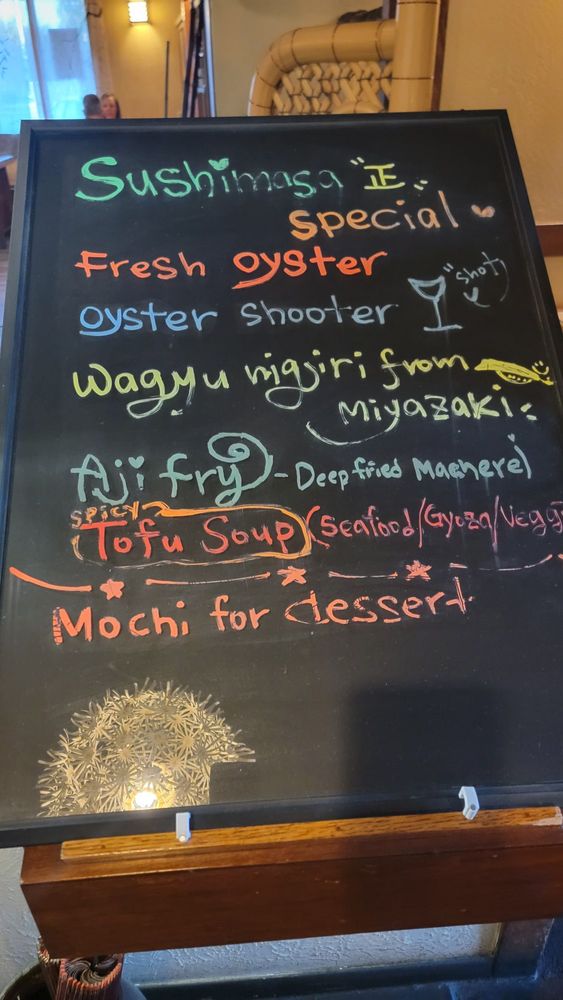 Sushimasa "正"
special
Fresh oyster
oyster shooter "shot"
Wagyu nigiri from
Miyazaki
Aji fry - Deep fried Machere)
SPICY
Tofu Soup (Seafood/Gyoza/Vegg
Mochi for dessert